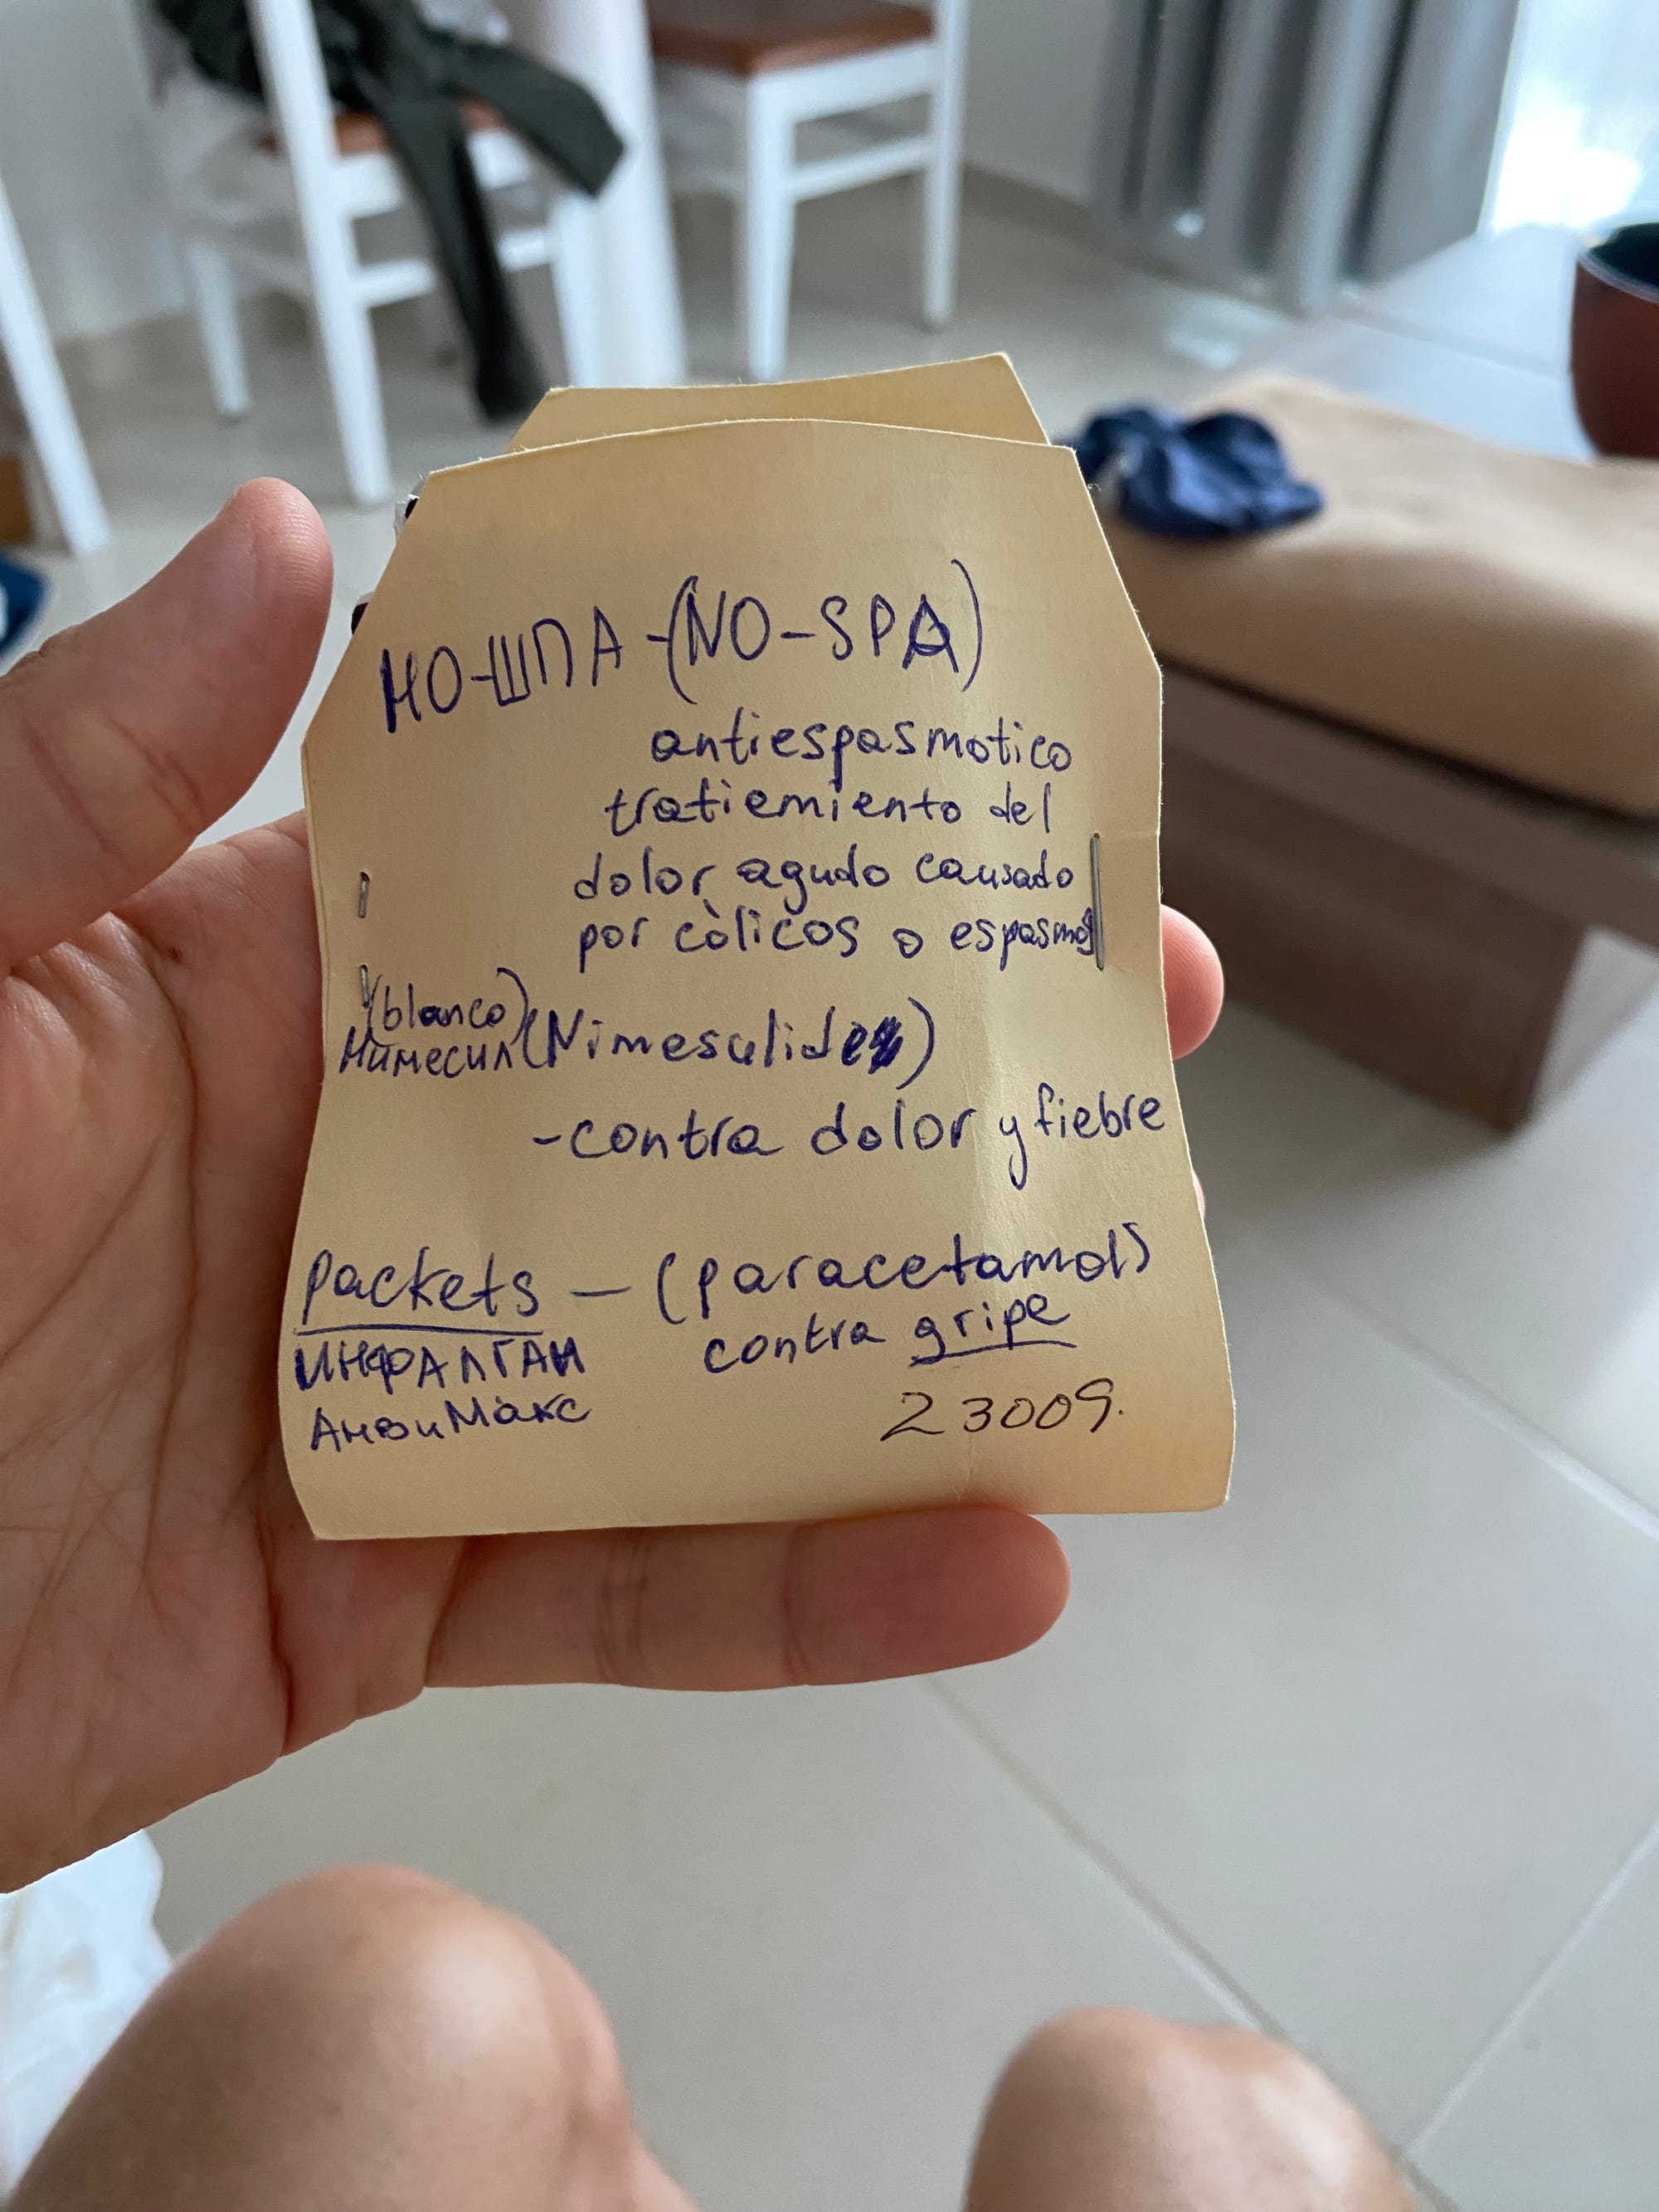 НО-ШПА-(NO-SPA)
antiespasmotico
tratiemiento del
dolor agudo causado
por còlicos o espasmos
(blanco)
Нимесил (Nimesulide)
-contra dolor y fiebre
Packets — (paracetamol)
contra gripe
ИНФАЛГАН
АнвиМакс
23009.